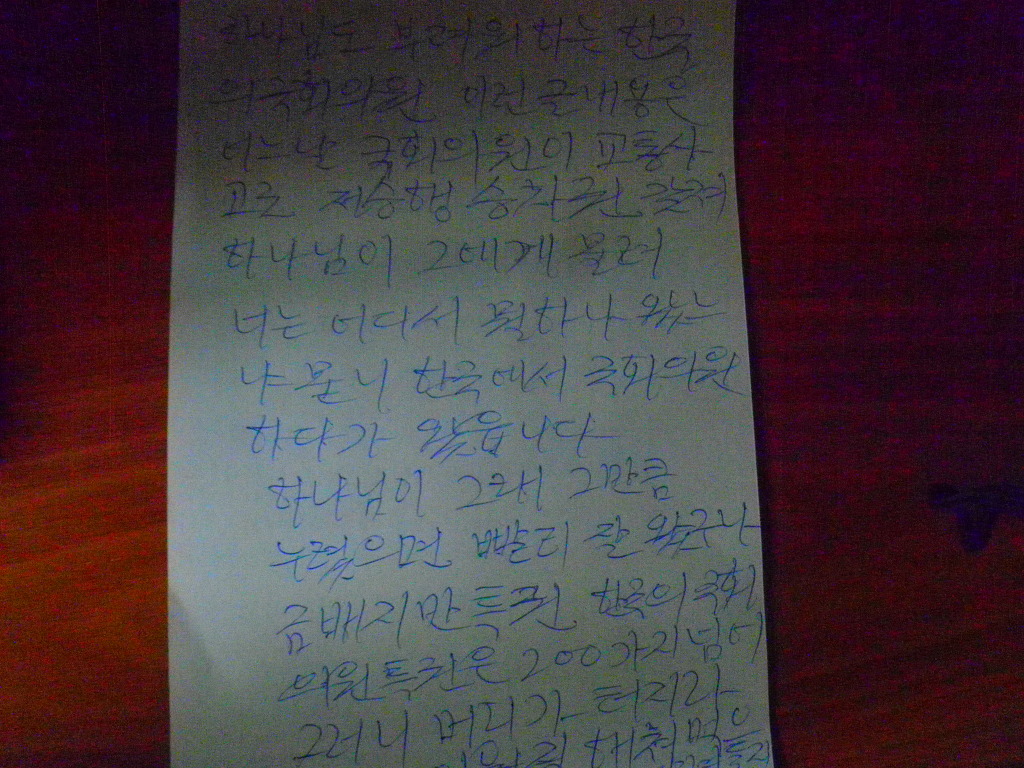 하나님도 부러워하는 한국
의국회의원 이런글내용은
어느날 국회의원이 교통사
고로 저승행 승차권 끊겨
하나님이 그에게 물려
너는 어디서 뭣하나 왔느
냐 묻니 한국에서 국회의원
하다가 왔읍니다
하나님이 그래 그만큼
누렸으면 빨리 잘 왔구나
금배지만 특권 한국의국회
의원특권은 200가지넘어
그러니 머리가 터지라
해쳐먹은